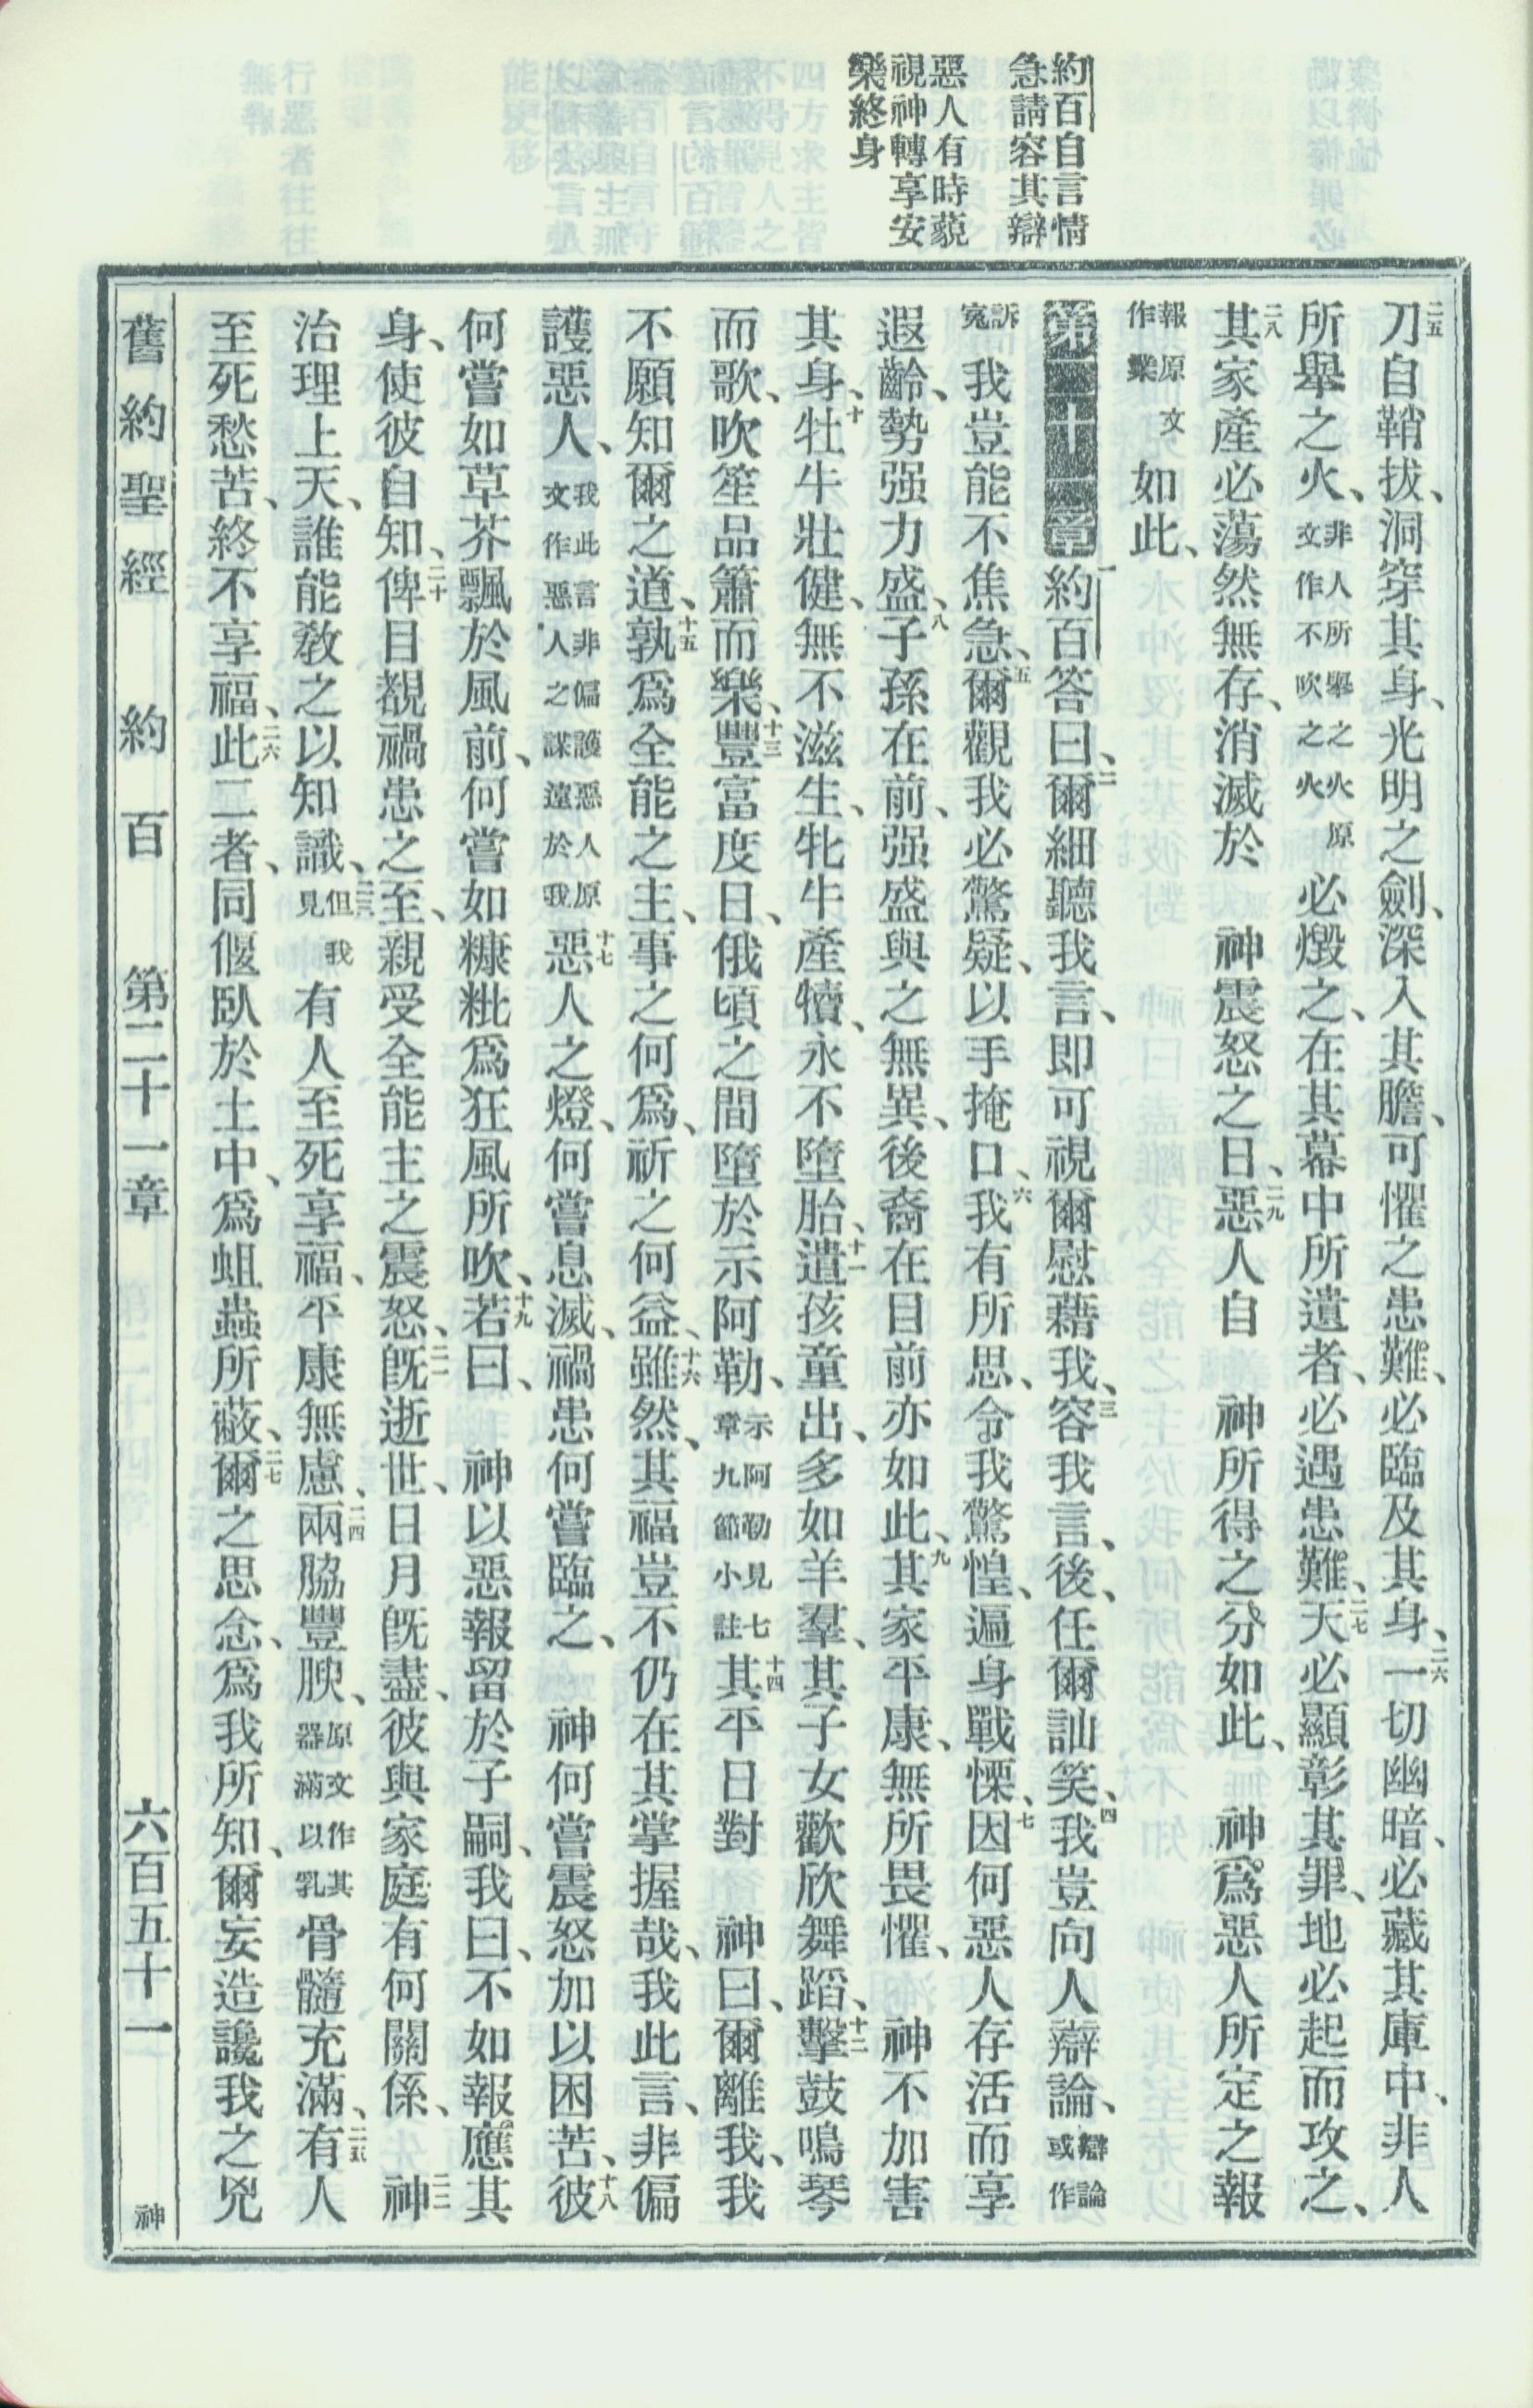 約百自言情
急請容其辯
惡人有時藐
視神轉享安
樂終身
二五刀自鞘拔、洞穿其身、光明之劍、深入其膽、可懼之患難、必臨及其身、二六一切幽暗、必藏其庫中、非人
所舉之火、非人所舉之火原文作不吹之火必燬之、在其幕中所遺者、必遇患難、二七天必顯彰其罪、地必起而攻之、
二八其家產必蕩然無存、消滅於 神震怒之日、二九惡人自 神所得之分如此、 神爲惡人所定之報
報原文作業如此、
第二十一章 一約百答曰、二爾細聽我言、即可視爾慰藉我、三容我言、後、任爾訕笑、四我豈向人辯論、辯論或作
訴冤我豈能不焦急、五爾觀我必驚疑、以手掩口、六我有所思、令我驚惶、遍身戰慄、七因何惡人存活而享
遐齡、勢强力盛、八子孫在前、强盛與之無異、後裔在目前亦如此、九其家平康、無所畏懼、 神不加害
其身、十牡牛壯健、無不滋生、牝牛產犢、永不墮胎、十一遣孩童出、多如羊羣、其子女歡欣舞蹈、十二擊鼓鳴琴
而歌、吹笙品簫而樂、十三豐富度日、俄頃之間墮於示阿勒、示阿勒見七章九節小註十四其平日對 神曰、爾離我、我
不願知爾之道、十五孰爲全能之主、事之何爲、祈之何益、十六雖然、其福豈不仍在其掌握哉、我此言、非偏
護惡人、我此言非偏護惡人原文作惡人之謀遠於我十七惡人之燈、何嘗息滅、禍患何嘗臨之、 神何嘗震怒加以困苦、十八彼
何嘗如草芥飄於風前、何嘗如糠粃爲狂風所吹、十九若曰、 神以惡報留於子嗣、我曰、不如報應其
身、使彼自知、二十俾目覩禍患之至、親受全能主之震怒、二一旣逝世、日月旣盡、彼與家庭有何關係、二二神
治理上天、誰能敎之以知識、二三但我見有人至死享福、平康無慮、二四兩脇豐腴、原文作其器滿以乳骨髓充滿、二五有人
至死愁苦、終不享福、二六此二者、同偃臥於土中、爲蛆蟲所蔽、二七爾之思念、爲我所知、爾妄造讒我之兇
舊約聖經 約百 第二十一章 六百五十一 神